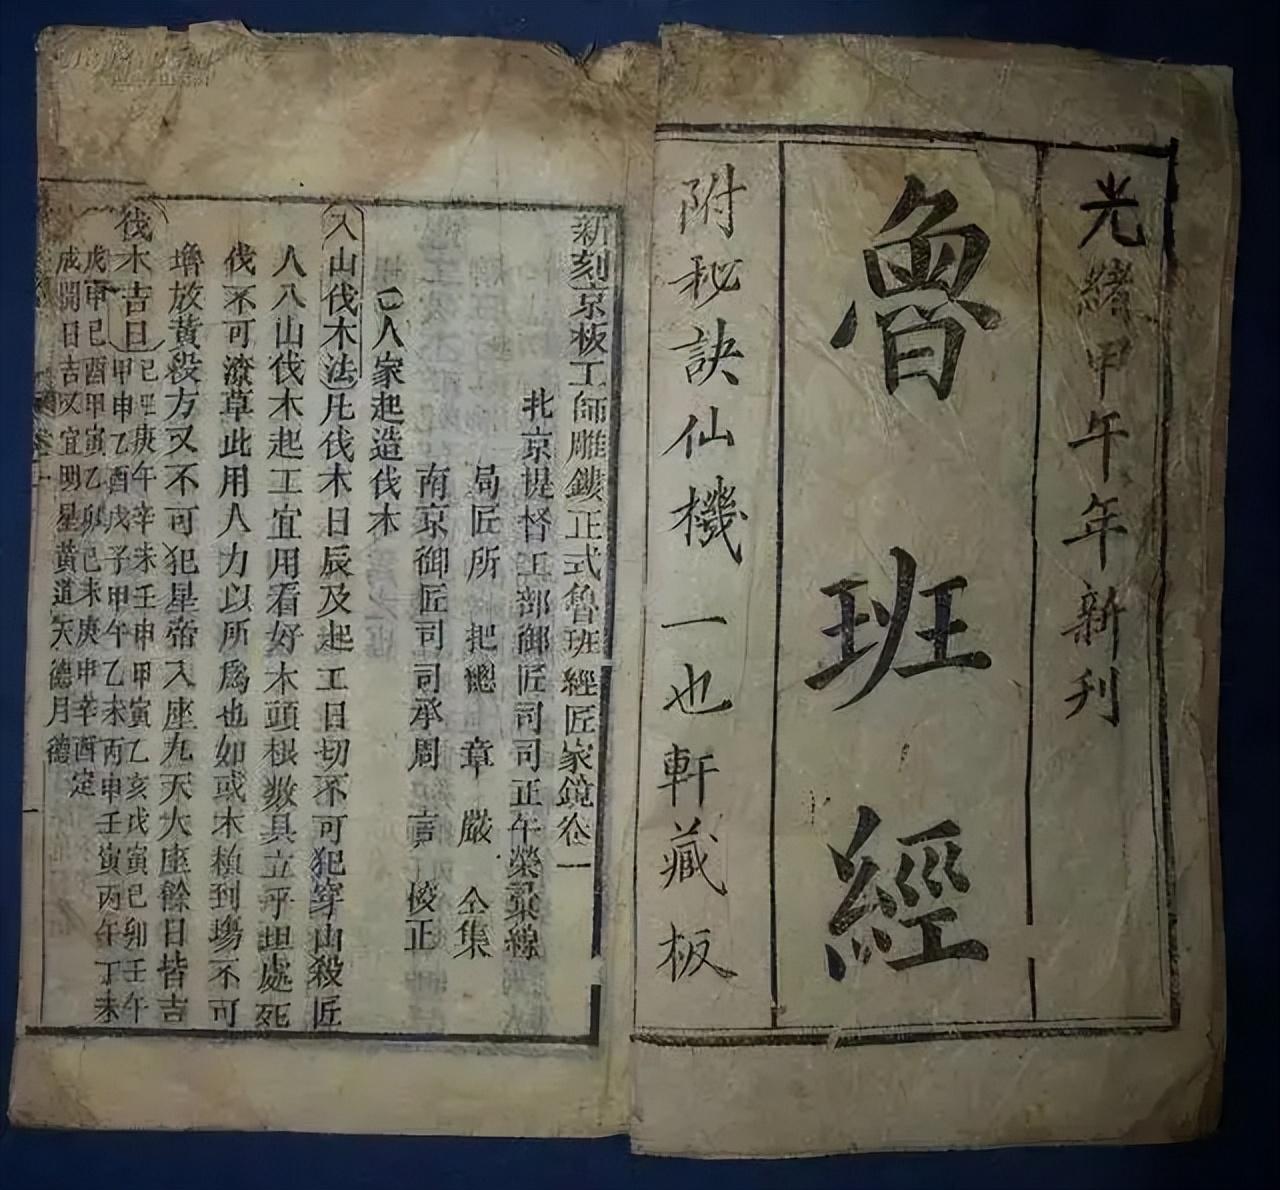 光緒甲午年新刊
魯班經
附秘訣仙機一也軒藏板
新刻京板工師雕鏤正式魯班經匠家鏡卷一
北京提督工部御匠司司正午榮彚線
局匠所把總章嚴仝集
南京御匠司司承周言校正
人家起造伐木
入山伐木法凡伐木日辰及起工日切不可犯穿山殺匠
人入山伐木起工宜用看好木頭根数具立平坦處死
伐不可潦草此用人力以所爲也如或木植到塲不可
堆放黃殺方又不可犯皇帝八座九天大座餘日皆吉
伐木吉日己巳庚午辛未壬申甲寅乙亥戊寅己卯壬午
甲申乙酉戊子甲午乙未丙申壬寅丙午丁未
戊申己酉甲寅乙卯己未庚申辛酉定
成開日吉又宜明星黃道天德月德